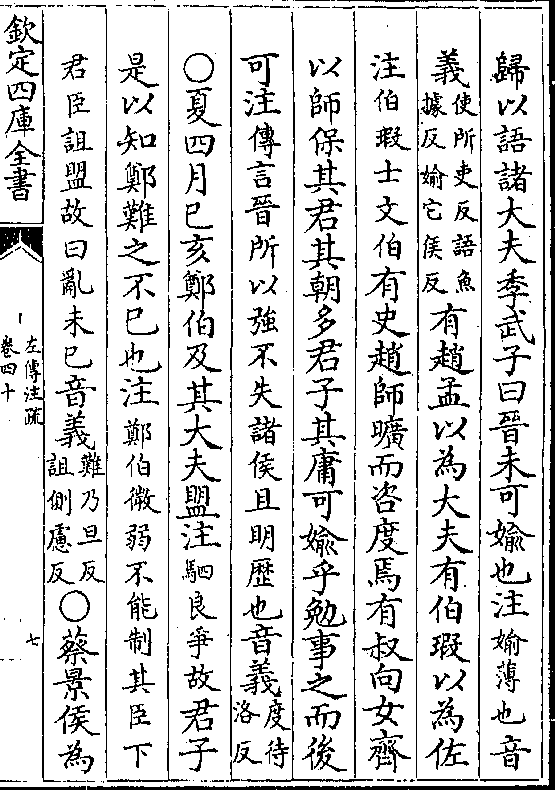 歸以語諸大夫季武子曰晉未可媮也注媮薄也音
義使所吏反語魚據反媮它侯反有趙孟以為大夫有伯瑕以為佐
注伯瑕士文伯有史趙師曠而咨度焉有叔向女齊
以師保其君其朝多君子其庸可媮乎勉事之而後
可注傳言晉所以強不失諸侯且明歷也音義度待洛反
○夏四月己亥鄭伯及其大夫盟注駟良爭故君子
是以知鄭難之不已也注鄭伯微弱不能制其臣下
君臣詛盟故曰亂未已音義難乃旦反詛側慮反○蔡景侯為
欽定四庫全書
左傳注疏
卷四十
七